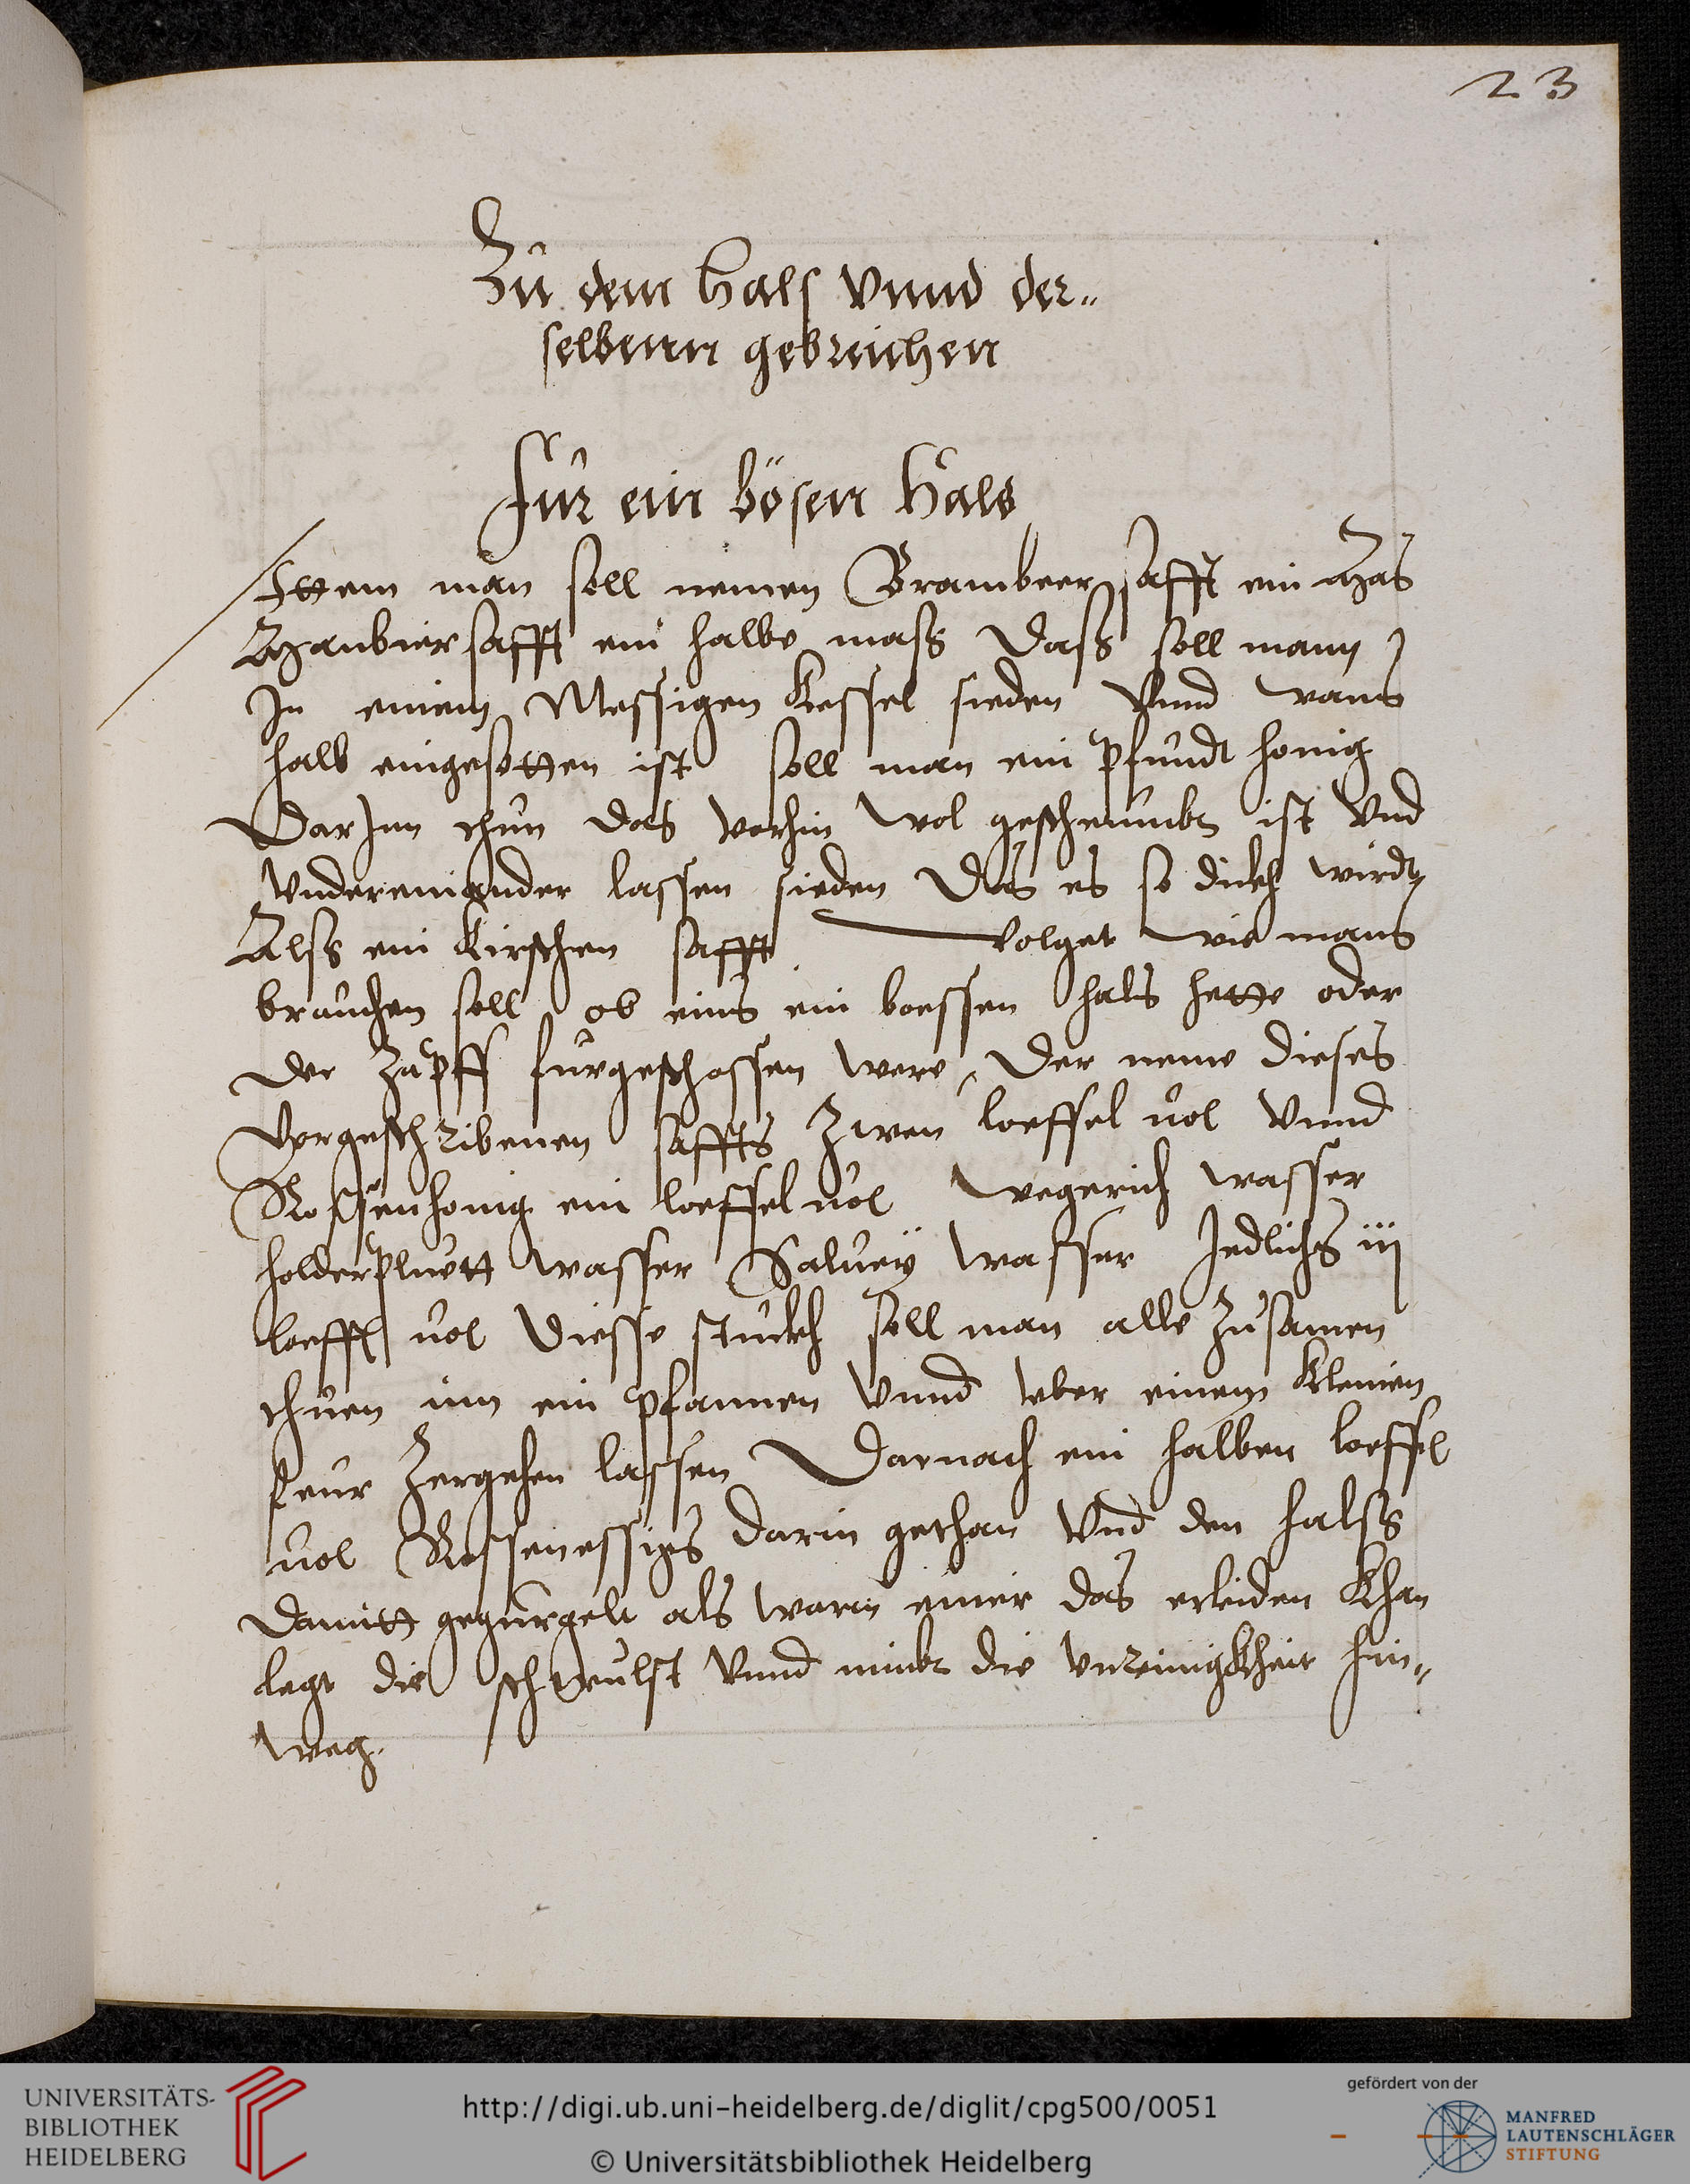 23
Zu dem Hals vnnd der„
selbenn gebreichen
Für ein bösen Hals
Ittem man soll nemen Brambeer safft ein Mas
Maubiersafft ein halbe mass dass soll mann
In einem Messigen Kessel sieden vnnd wans
halb eingesotten ist soll man ein pfundt honig
Darinn thun das vorhin wol gescheumbt ist vnd
vndereinander lassen sieden Das es so dickh wirdt
Alss ein Kirschen safft volget wie mans
brauchen soll ob eins ein boessen hals hette oder
der Zapff furgeschossen were, Der neme dieses
vorgeschribenen saffts Zwen loeffel uol vnnd
Rossenhonig ein loeffel uol wegerich wasser
holderpluett wasser Saluey wasser Jedlichs iij
loeffl uol Diesse stuckh soll man alle Zusamen
thuen inn ein pfannen vnnd vber einem kleinen
feur Zergehen lassen Darnach ein halben loeffel
uol Rossenessigs darin gethan vnd den halss
damitt gegurgelt als warm einer das erleiden khan
legt die schwulst vnnd nimbt die vnreinigkheit hin„
weg.
UNIVERSITÄTS-
BIBLIOTHEK
HEIDELBERG
http://digi.ub.uni-heidelberg.de/diglit/cpg500/0051
© Universitätsbibliothek Heidelberg
gefördert von der
MANFRED
LAUTENSCHLÄGER
STIFTUNG